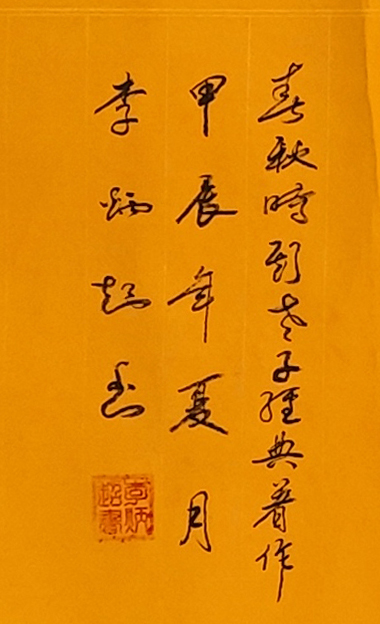 春秋時期老子經典著作
甲辰年夏月
李炳超書
李炳超書